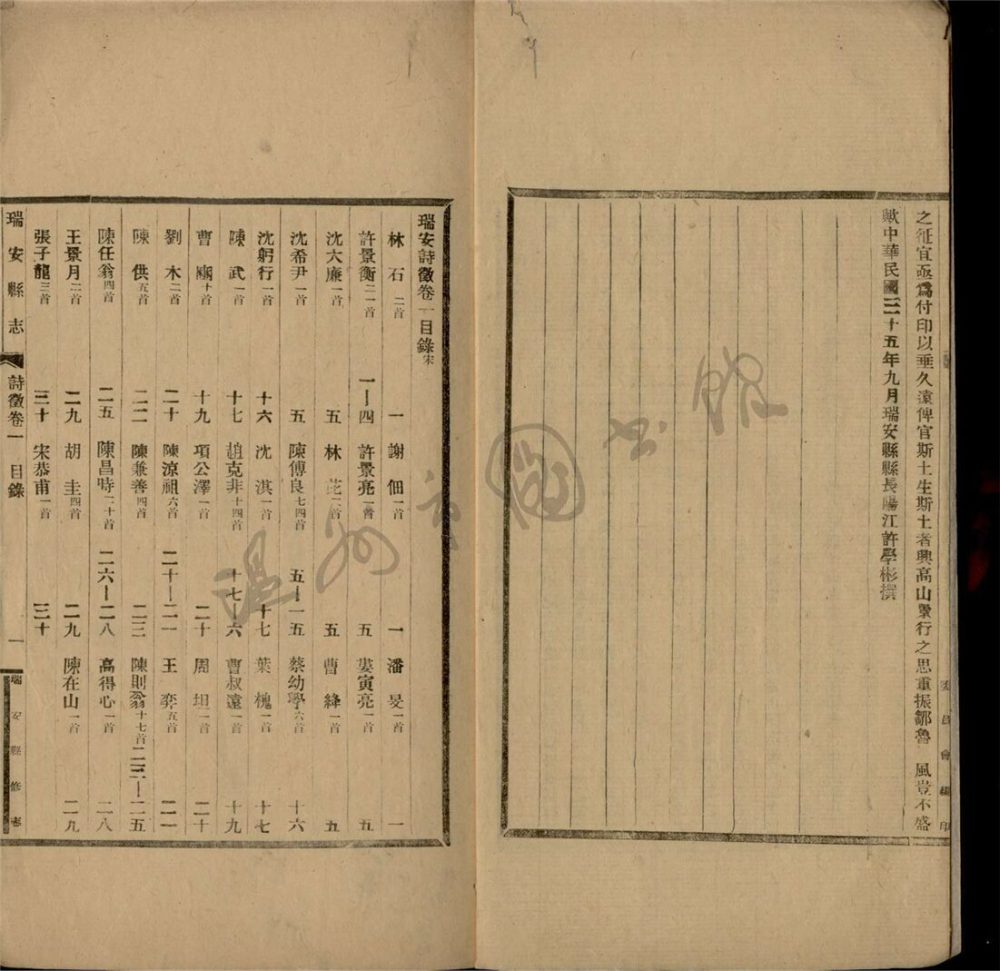 之征宜亟爲付印以垂久遠俾官斯土生斯土者興高山景行之思重振鄒魯 風豈不盛
歟中華民國三十五年九月瑞安縣縣長陽江許學彬撰
瑞安詩徵卷一目錄宋
林 石 二首 一 謝 佃 一首 一 潘 旻 一首 一
許景衡 二一首 一—四 許景亮 一首 五 婁寅亮 一首 五
沈大廉 一首 五 林 芘 一首 五 曹 絳 一首 五
沈希尹 一首 五 陳傅良 七四首 五—一五 蔡幼學 六首 十六
沈躬行 一首 十六 沈 淇 一首 十七 葉 槐 一首 十七
陳 武 一首 十七 趙克非 十四首 十七—六 曹叔遠 一首 十九
曹 豳 十首 十九 項公澤 一首 二十 周 坦 一首 二十
劉 木 二首 二十 陳涼祖 六首 二十—二一 王 奕 五首 二一
陳 供 五首 二二 陳兼善 四首 二三 陳則翁 十七首 二三—二五
陳任翁 四首 二五 陳昌時 二十首 二六—二八 高得心 一首 二八
王景月 二首 二九 胡 圭 四首 二九 陳在山 一首 二九
張子龍 三首 三十 宋恭甫 一首 三十
瑞安縣志 詩徵卷一 目錄 一 瑞安縣修志
委員會編印
溫州市圖書館